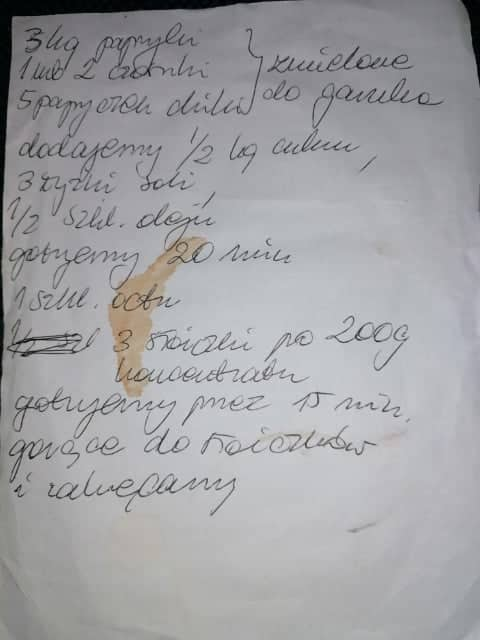 3 kg papryki
1 lub 2 czosnki } zmielone
5 papryczek chili } do garnka
dodajemy 1/2 kg cukru,
3 łyżki soli,
1/2 szkl. oleju
gotujemy 20 min
1 szkl. octu
3 słoiczki po 200g
koncentratu
gotujemy przez 15 min.
gorące do słoiczków
i zakręcamy